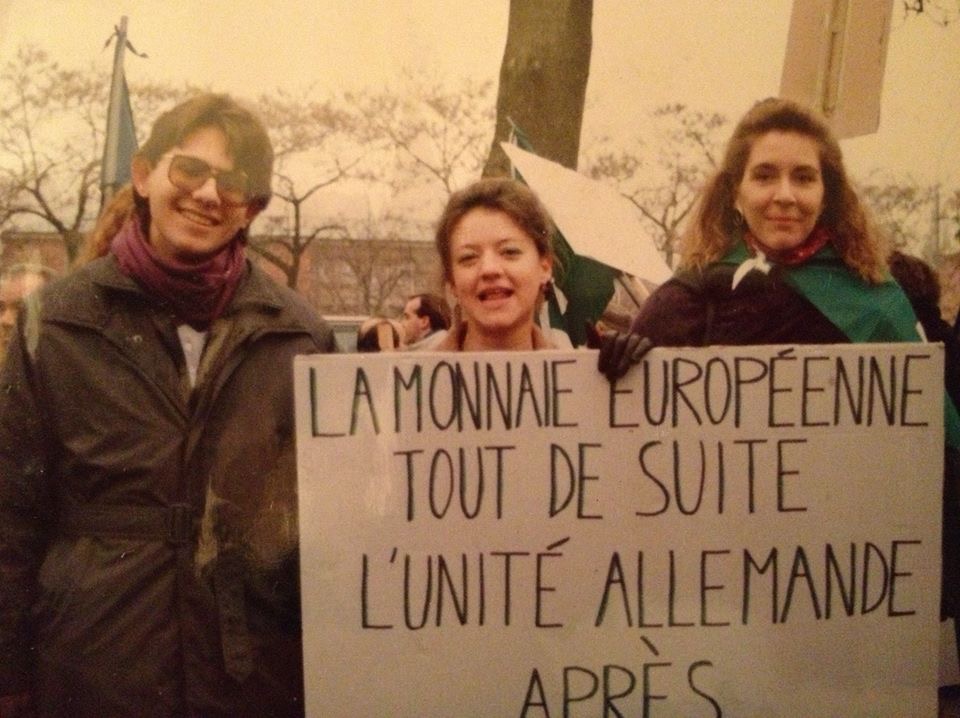 LA MONNAIE EUROPÉENNE
TOUT DE SUITE
L'UNITÉ ALLEMANDE
APRÈS